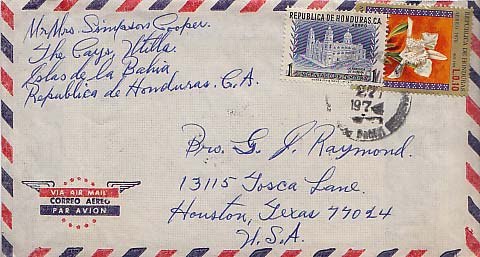 Mr Mrs. Simpson Cooper.
The Cays, Utilla.
Islas de la Bahia
Republica de Honduras. C. A.
REPUBLICA DE HONDURAS, C.A.
AEREO
1
REPUBLICA DE HONDURAS
L.0.10
27
197
Bro. G. J. Raymond.
13115 Tosca Lane.
Houston, Texas 77024
U.S.A.
VIA AIR MAIL
CORREO AÉREO
PAR AVION